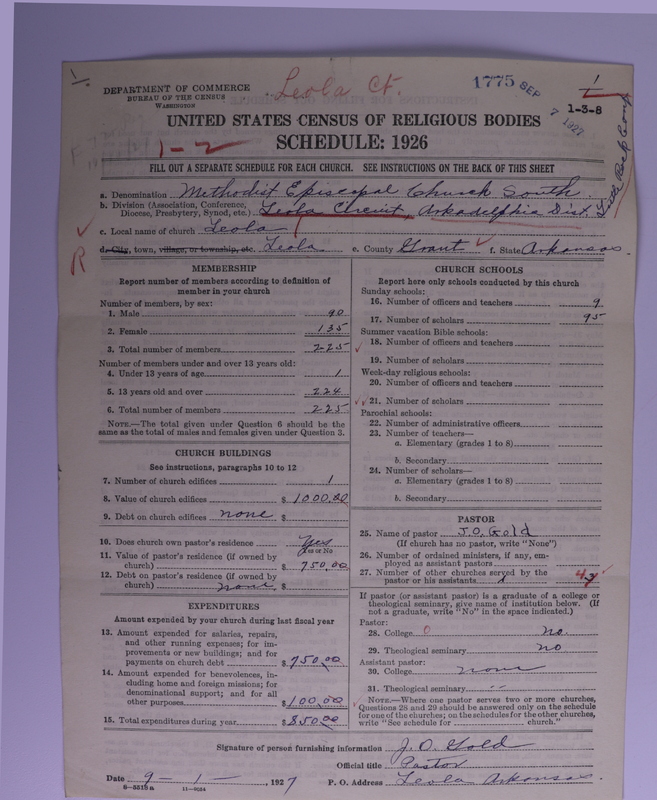 Leola Ct.
1775 SEP 7 1927
1-3-8
DEPARTMENT OF COMMERCE
BUREAU OF THE CENSUS
WASHINGTON
UNITED STATES CENSUS OF RELIGIOUS BODIES
1-2
SCHEDULE: 1926
FILL OUT A SEPARATE SCHEDULE FOR EACH CHURCH. SEE INSTRUCTIONS ON THE BACK OF THIS SHEET
a. Denomination Methodist Episcopal Church South
b. Division (Association, Conference,
Diocese, Presbytery, Synod, etc.) Leola Circuit, Arkadelphia Dist.
c. Local name of church Leola
R
d. City, town, village, or township, etc. Leola e. County Grant f. State Arkansas.
MEMBERSHIP
Report number of members according to definition of
member in your church
Number of members, by sex:
1. Male 90
2. Female 135
3. Total number of members 225
Number of members under and over 13 years old:
4. Under 13 years of age 1
5. 13 years old and over 224
6. Total number of members 225
NOTE.—The total given under Question 6 should be the
same as the total of males and females given under Question 3.
CHURCH BUILDINGS
See instructions, paragraphs 10 to 12
7. Number of church edifices 1
8. Value of church edifices $ 1000.00
9. Debt on church edifices none $
10. Does church own pastor's residence? Yes
Yes or No
11. Value of pastor's residence (if owned by
church) $ 750.00
12. Debt on pastor's residence (if owned by
church) none $
EXPENDITURES
Amount expended by your church during last fiscal year
13. Amount expended for salaries, repairs,
and other running expenses; for im-
provements or new buildings; and for
payments on church debt $ 750.00
14. Amount expended for benevolences, in-
cluding home and foreign missions; for
denominational support; and for all
other purposes $ 100.00
15. Total expenditures during year $ 850.00
CHURCH SCHOOLS
Report here only schools conducted by this church
Sunday schools:
16. Number of officers and teachers 9
17. Number of scholars 95
Summer vacation Bible schools:
18. Number of officers and teachers
19. Number of scholars
Week-day religious schools:
20. Number of officers and teachers
21. Number of scholars
Parochial schools:
22. Number of administrative officers
23. Number of teachers—
a. Elementary (grades 1 to 8)
b. Secondary
24. Number of scholars—
a. Elementary (grades 1 to 8)
b. Secondary
PASTOR
25. Name of pastor J.O. Gold
(If church has no pastor, write "None")
26. Number of ordained ministers, if any, em-
ployed as assistant pastors
27. Number of other churches served by the
pastor or his assistants 4
If pastor (or assistant pastor) is a graduate of a college or
theological seminary, give name of institution below. (If
not a graduate, write "No" in the space indicated.)
Pastor:
28. College 0 no.
29. Theological seminary no
Assistant pastor:
30. College none
31. Theological seminary "
NOTE.—Where one pastor serves two or more churches,
Questions 28 and 29 should be answered only on the schedule
for one of the churches; on the schedules for the other churches,
write "See schedule for church."
Signature of person furnishing information J. O. Gold
Official title Pastor
Date 9-1-, 1927 P. O. Address Leola Arkansas.
8-5518a 11-9224